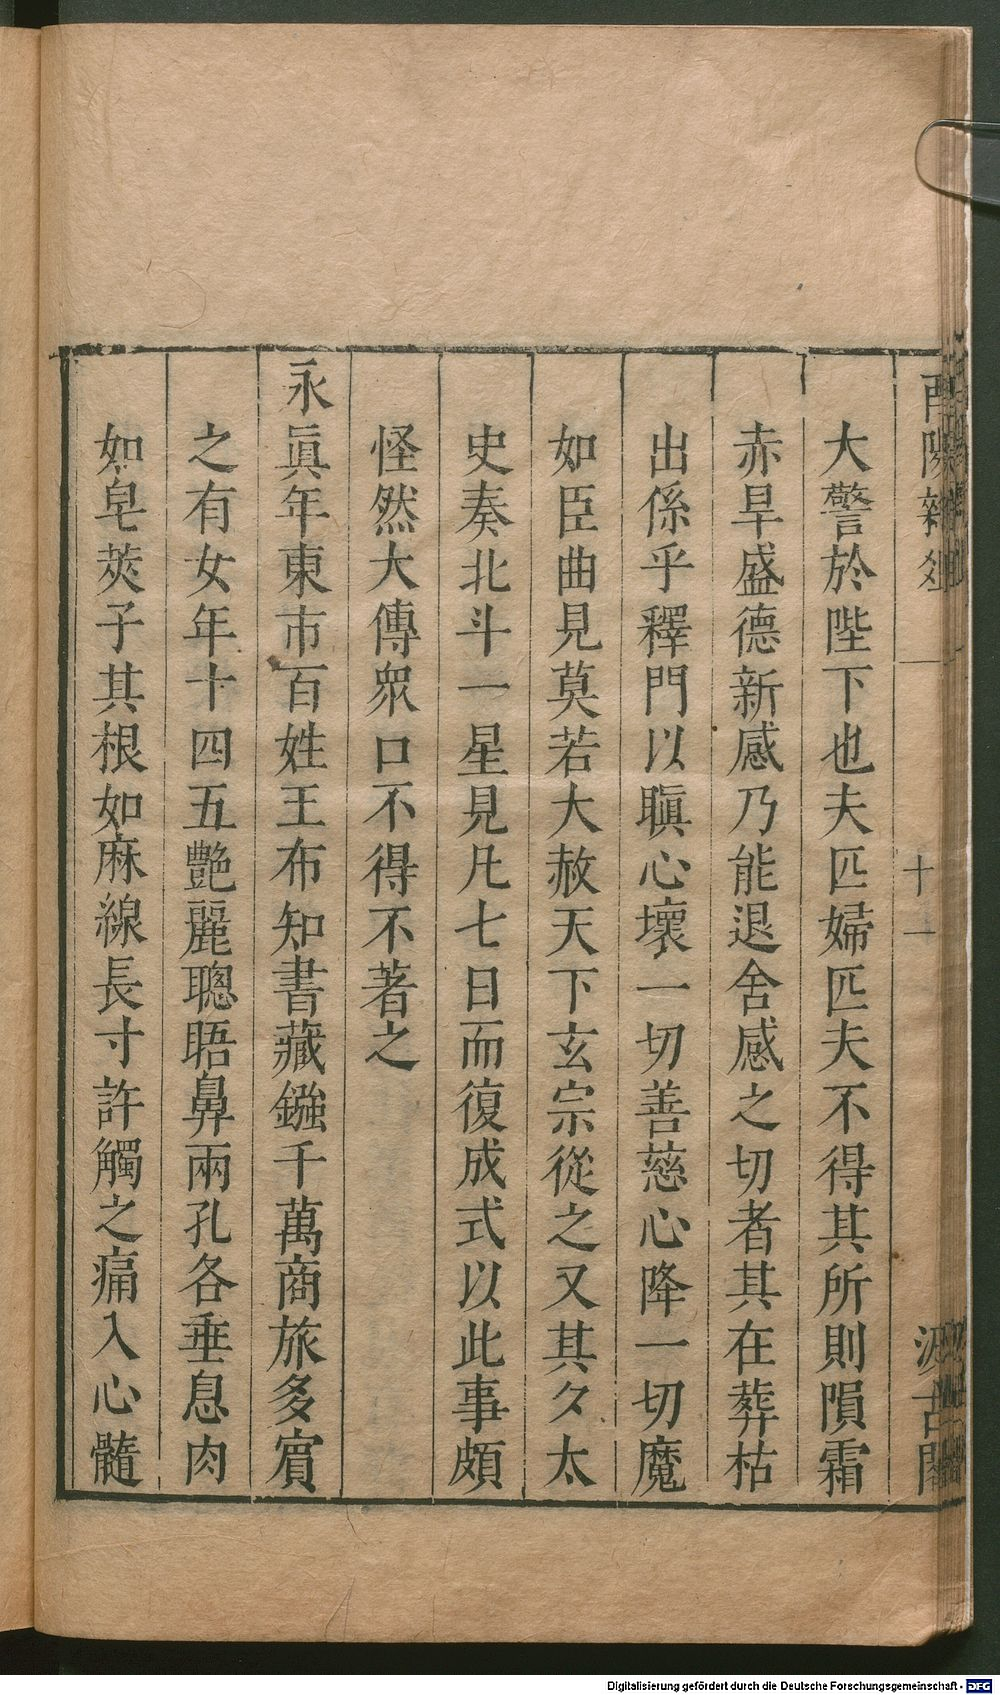 酉陽雜俎
十一
汲古閣
大警於陛下也夫匹婦匹夫不得其所則隕霜
赤旱盛德新感乃能退舍感之切者其在葬枯
出係乎釋門以瞋心壞一切善慈心降一切魔
如臣曲見莫若大赦天下玄宗從之又其夕太
史奏北斗一星見凡七日而復成式以此事頗
怪然大傳眾口不得不著之
永眞年東市百姓王布知書藏鏹千萬商旅多賔
之有女年十四五艷麗聰晤鼻兩孔各垂息肉
如皂莢子其根如麻線長寸許觸之痛入心髓
Digitalisierung gefördert durch die Deutsche Forschungsgemeinschaft - DFG